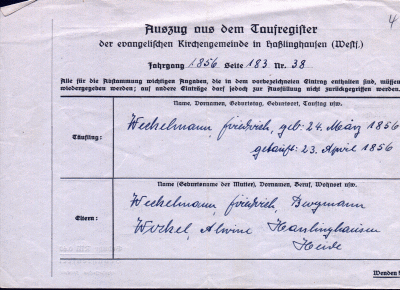 4
Auszug aus dem Taufregister
der evangelischen Kirchengemeinde in Haßlinghausen (Westf.)
Jahrgang 1856 Seite 183 Nr. 38
Alle für die Abstammung wichtigen Angaben, die in dem vorbezeichneten Eintrag enthalten sind, müssen
wiedergegeben werden; auf andere Einträge darf jedoch zur Ausfüllung nicht zurückgegriffen werden.
Name, Vornamen, Geburtstag, Geburtsort, Tauftag usw.
Täufling:
Weckelmann, Friedrich, geb. 24. März 1856
getauft: 23. April 1856
Name (Geburtsname der Mutter), Vornamen, Beruf, Wohnort usw.
Eltern:
Weckelmann, Friedrich, Bergmann
Alwine Hasslinghausen
Heide
Wenden